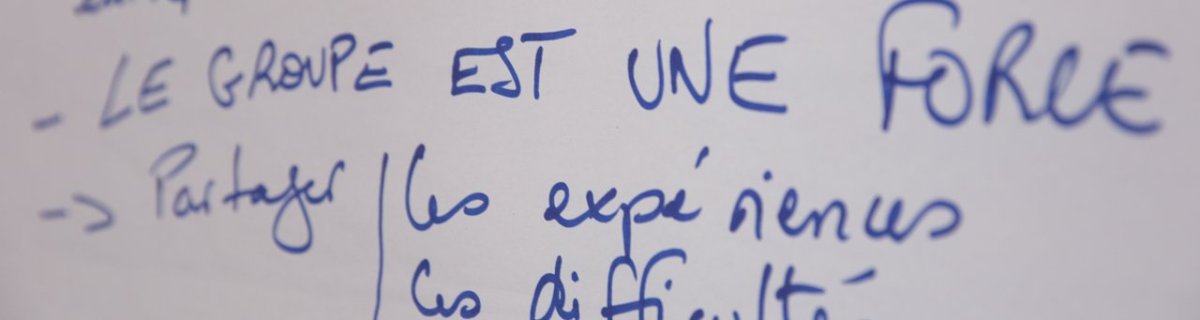 - LE GROUPE EST UNE FORCE
-> Partager | les expériences
les difficulté